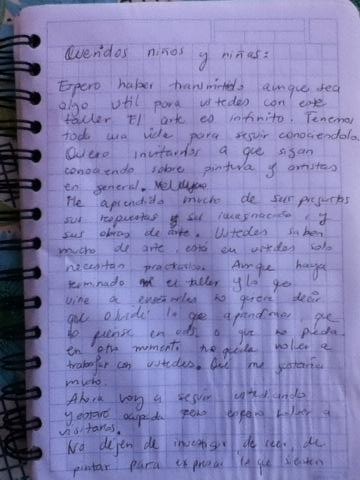 Queridos niños y niñas:
Espero haber transmitido aunque sea
algo util para ustedes con este
taller El arte es infinito. Tenemos
toda una vida para seguir conociendola.
Quiero invitarnos a que sigan
conociendo sobre pintura y artistas
en general.
Me aprendido mucho de sus preguntas
sus respuestas y su imaginacion y
sus obras de arte. Ustedes saben
mucho de arte está en ustedes solo
necesitan practicarlo. Aunque haya
terminado el taller y lo que
vine a enseñarles no quiere decir
que olvidé lo que aprendimos que
no piense en uds o que no pueda
en otro momento no pueda volver a
trabajar con ustedes. Que me gustaria
mucho.
Ahora voy a seguir estudiando
y estaré ocupada pero espero volver a
visitarlos.
No dejen de investigar de leer de
pintar para expresar lo que sienten